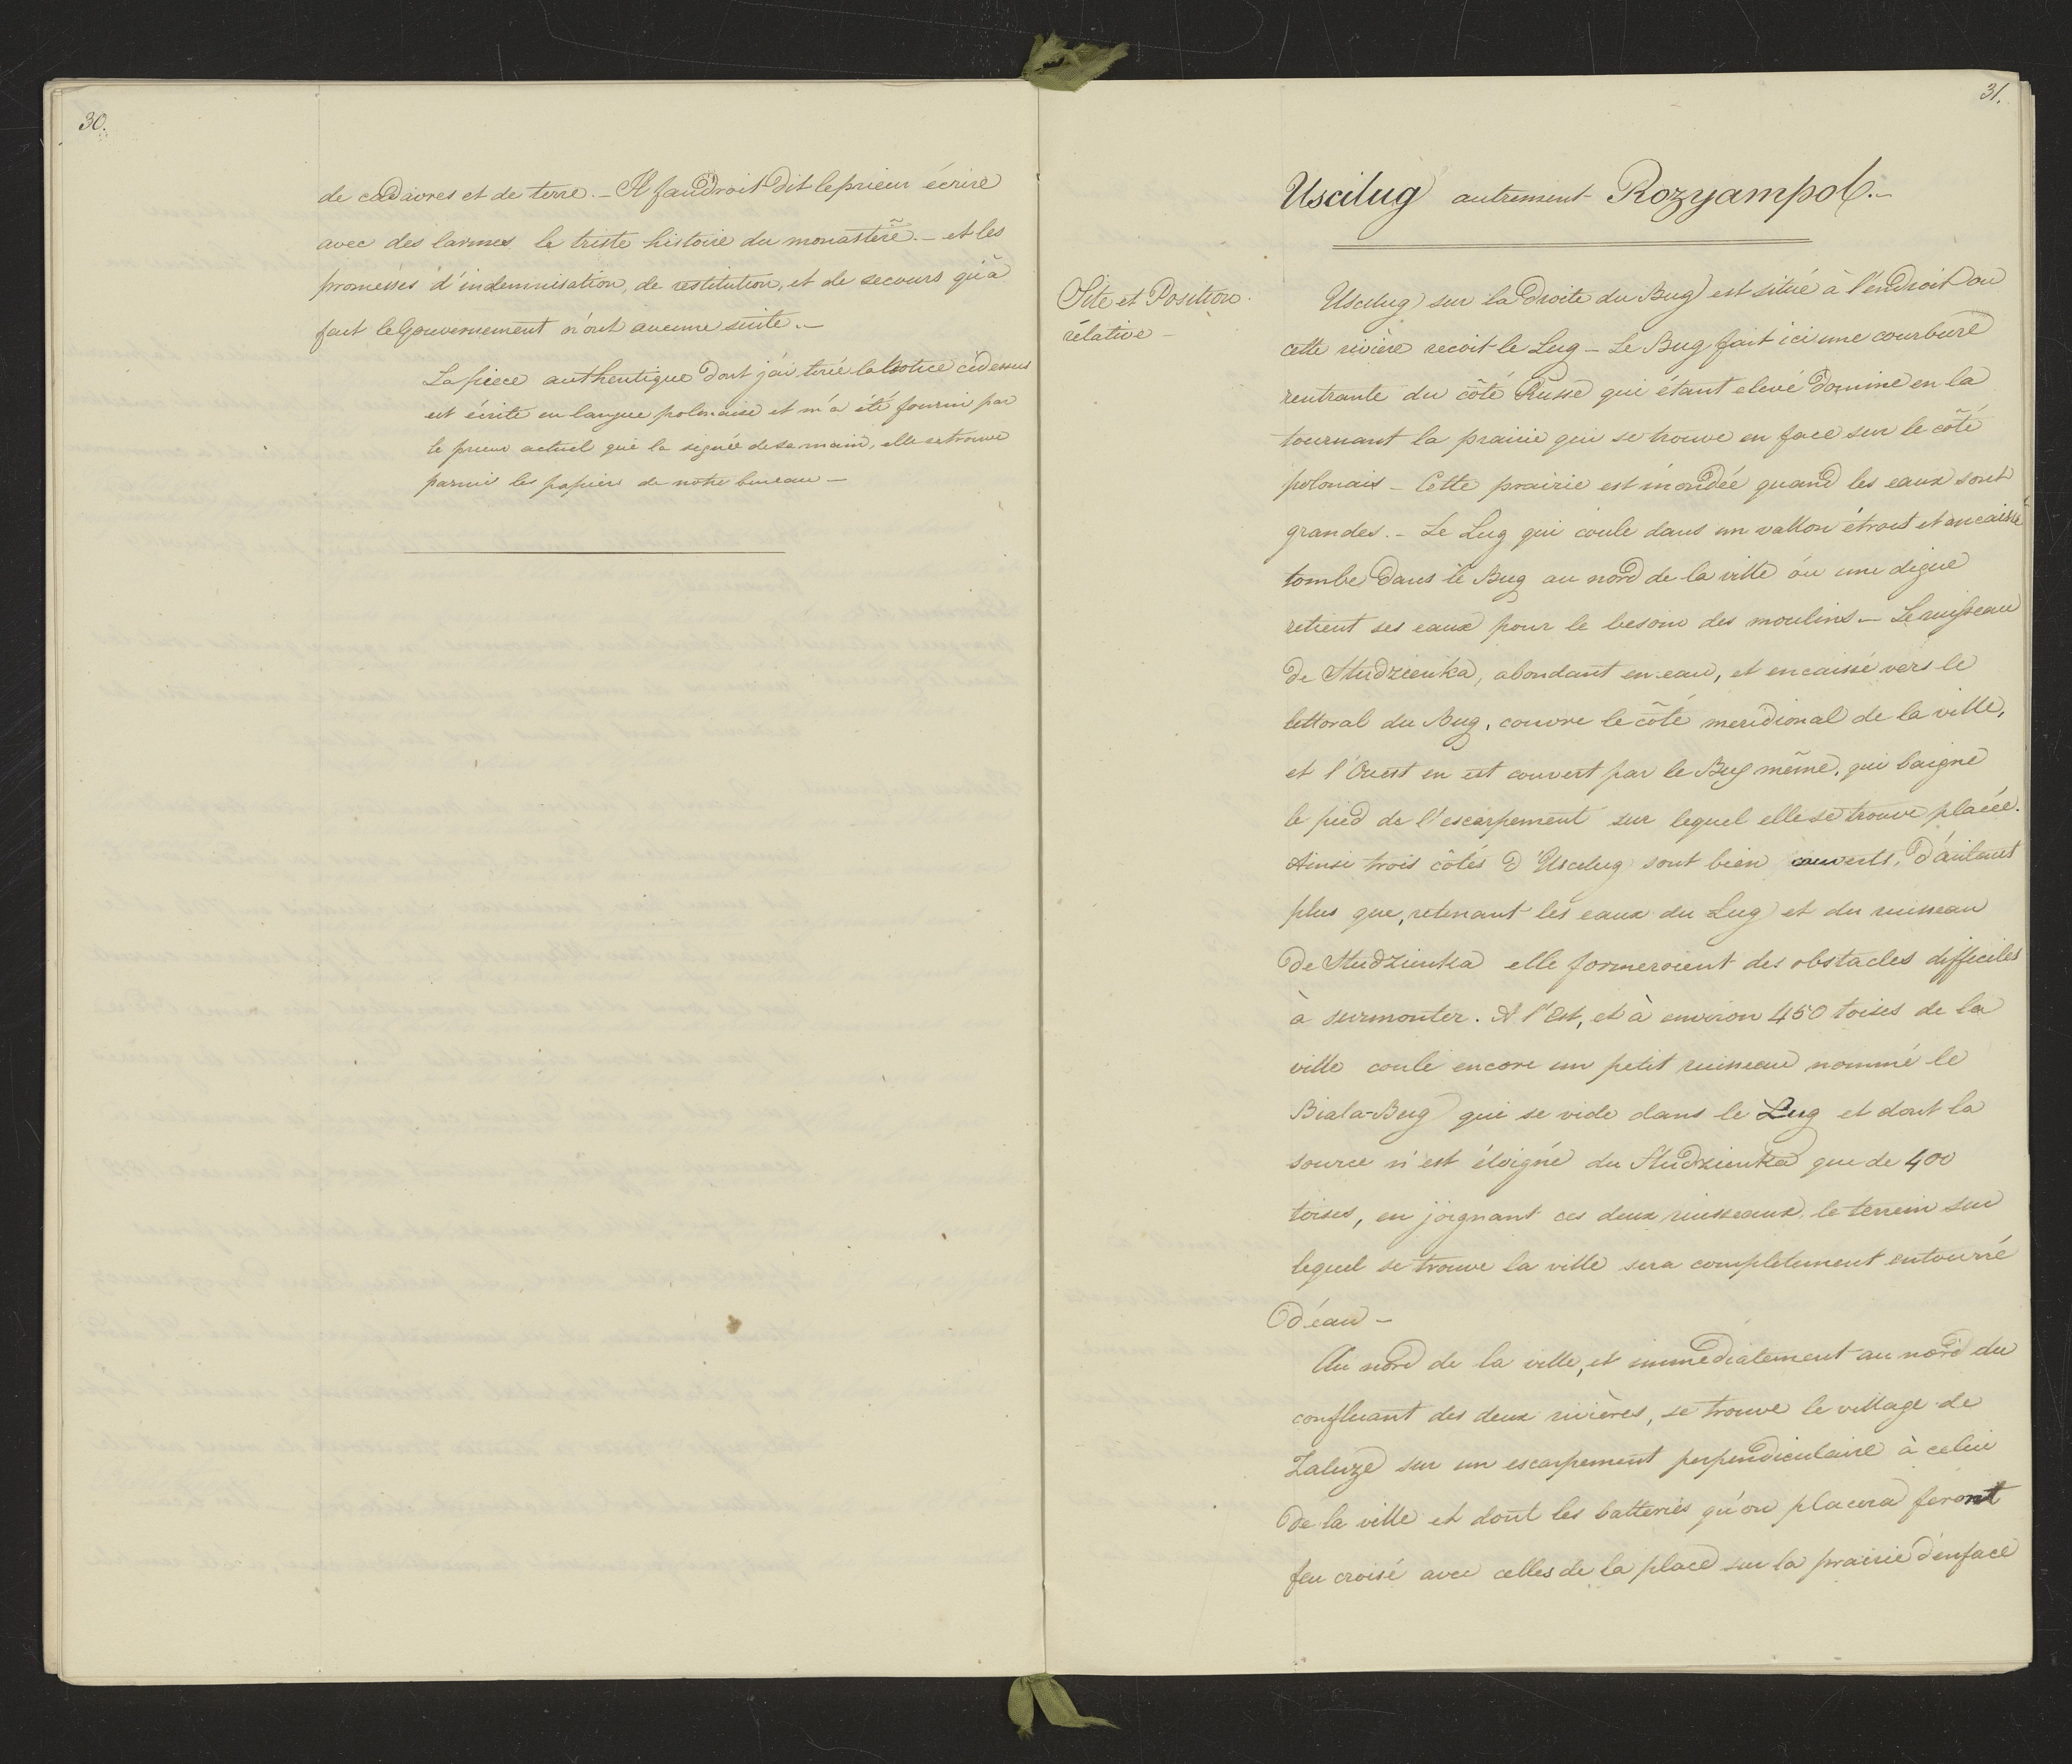 30.
de cadavres et de terre. – Il faudroit dit le prieur écrire
avec des larmes le triste histoire du monastère. – et les
promésses d'indemnisation, de restitution, et de secours qu'à
fait le Gouvernement n'ont aucune suite. –
La piece authentique dont j'ai tirée la Notice cidessus
est écrite en langue polonaise et m'a été fourni par
le prieur actuel qui la signée de sa main, elle se trouve
parmis les papiers de notre bureau –
31.
Uscilug autrement Rozyampol. –
Site et Position
rélative –
Uscilug sur la droite du Bug est situé à l'endroit ou
cette rivière recoit le Lug – Le Bug fait ici une courbure
rentrante du côté Russe qui étant elevé domine en la
tournant la prairie qui se trouve en face sur le côté
polonais – Cette prairie est inondée quand les eaux sont
grandes. – Le Lug qui coule dans un vallon étroit et encaissé
tombe dans le Bug au nord de la ville óu une digue
retient ses eaux pour le besoin des moulins – Le ruisseau
de Studzienka, abondant en eau, et encaissé vers le
littoral du Bug, couvre le côté meridional de la ville,
et l'Ouest en est couvert par le Bug même, qui baigne
le pied de l'escarpement sur lequel elle se trouve placée.
Ainsi trois côtés d'Uscilug sont bien couverts, d'autant
plus que, retenant les eaux du Lug et du ruisseau
de Studzienka elle formeroient des obstacles difficiles
à surmonter. A l'Est, et à environ 450 toises de la
ville coule encore un petit ruisseau nommé le
Biala-Bug qui se vide dans le Lug et dont la
source n'est éloigné du Studzienka que de 400
toises, en joignant ces deux ruisseaux, le terrein sur
lequel se trouve la ville sera completement entourré
d'eau –
Au nord de la ville, et immediatement au nord du
confluant des deux rivières, se trouve le village de
Zaluze sur un escarpement perpendiculaire à celui
de la ville et dont les batteries qu'on placera feront
feu croisé avec celles de la place sur la prairie d'enface